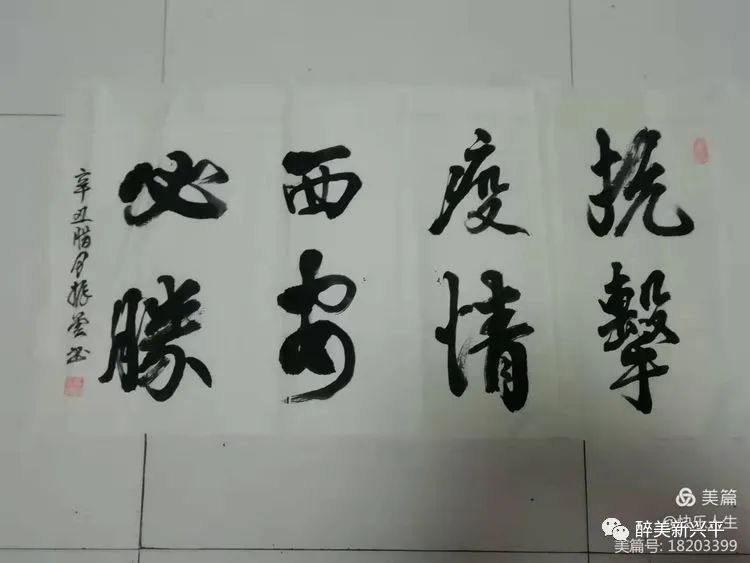 抗擊
疫情
西安
必勝
辛丑腊月振荣书
美篇
@快乐人生
醉美新兴平
美篇号: 18203399